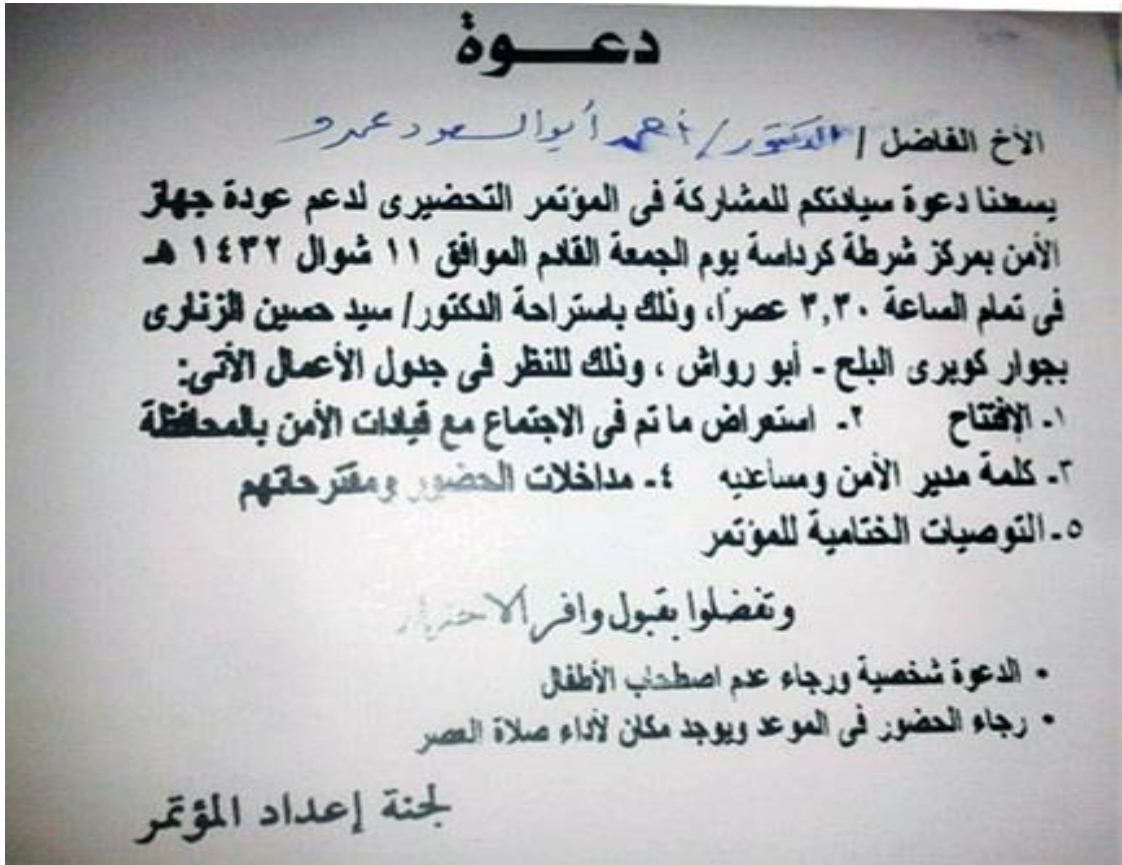 دعـــوة
الأخ الفاضل / الدكتور / أحمد أبوالسعود عمرو
يسعدنا دعوة سيادتكم للمشاركة فى المؤتمر التحضيرى لدعم عودة جهاز
الأمن بمركز شرطة كرداسة يوم الجمعة القادم الموافق ١١ شوال ١٤٣٢ هـ
فى تمام الساعة ٣,٣٠ عصرًا، وذلك باستراحة الدكتور/ سيد حسين الزنارى
بجوار كوبرى البلح - أبو رواش ، وذلك للنظر فى جدول الأعمال الآتى:
١- الإفتتاح ٢- استعراض ما تم فى الاجتماع مع قيادات الأمن بالمحافظة
٣- كلمة مدير الأمن ومساعديه ٤- مداخلات الحضور ومقترحاتهم
٥- التوصيات الختامية للمؤتمر
وتفضلوا بقبول وافر الاحترام
• الدعوة شخصية ورجاء عدم اصطحاب الأطفال
• رجاء الحضور فى الموعد ويوجد مكان لأداء صلاة العصر
لجنة إعداد المؤتمر